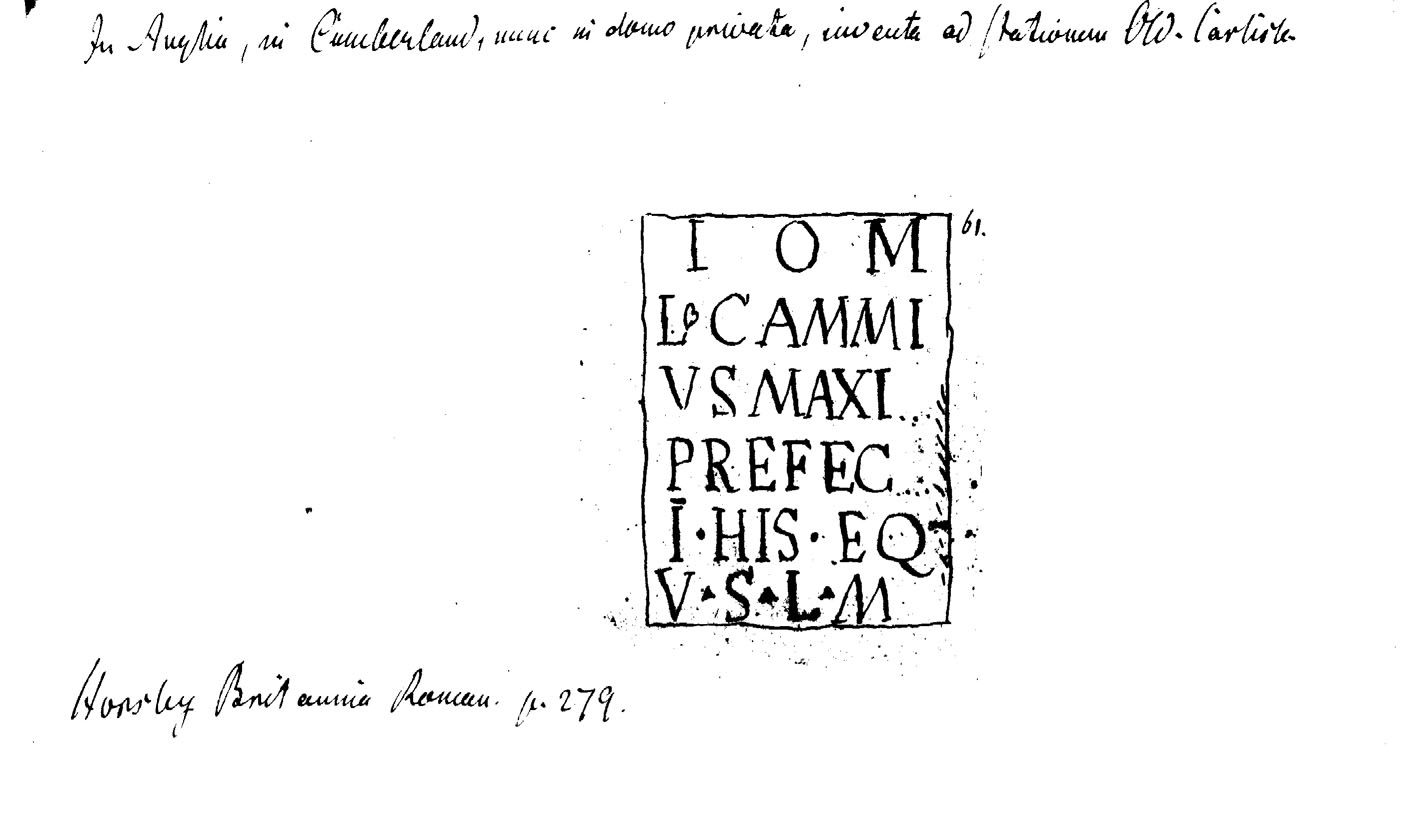 In Anglia, in Cumberland, nunc in domo privata, inventa ad stationem Old-Carlisle
I O M 61.
L CAMMI
VS MAXI...
PREFEC....
Ī·HIS·EQ
V·S·L·M
Horsley Britannia Roman. p. 279.